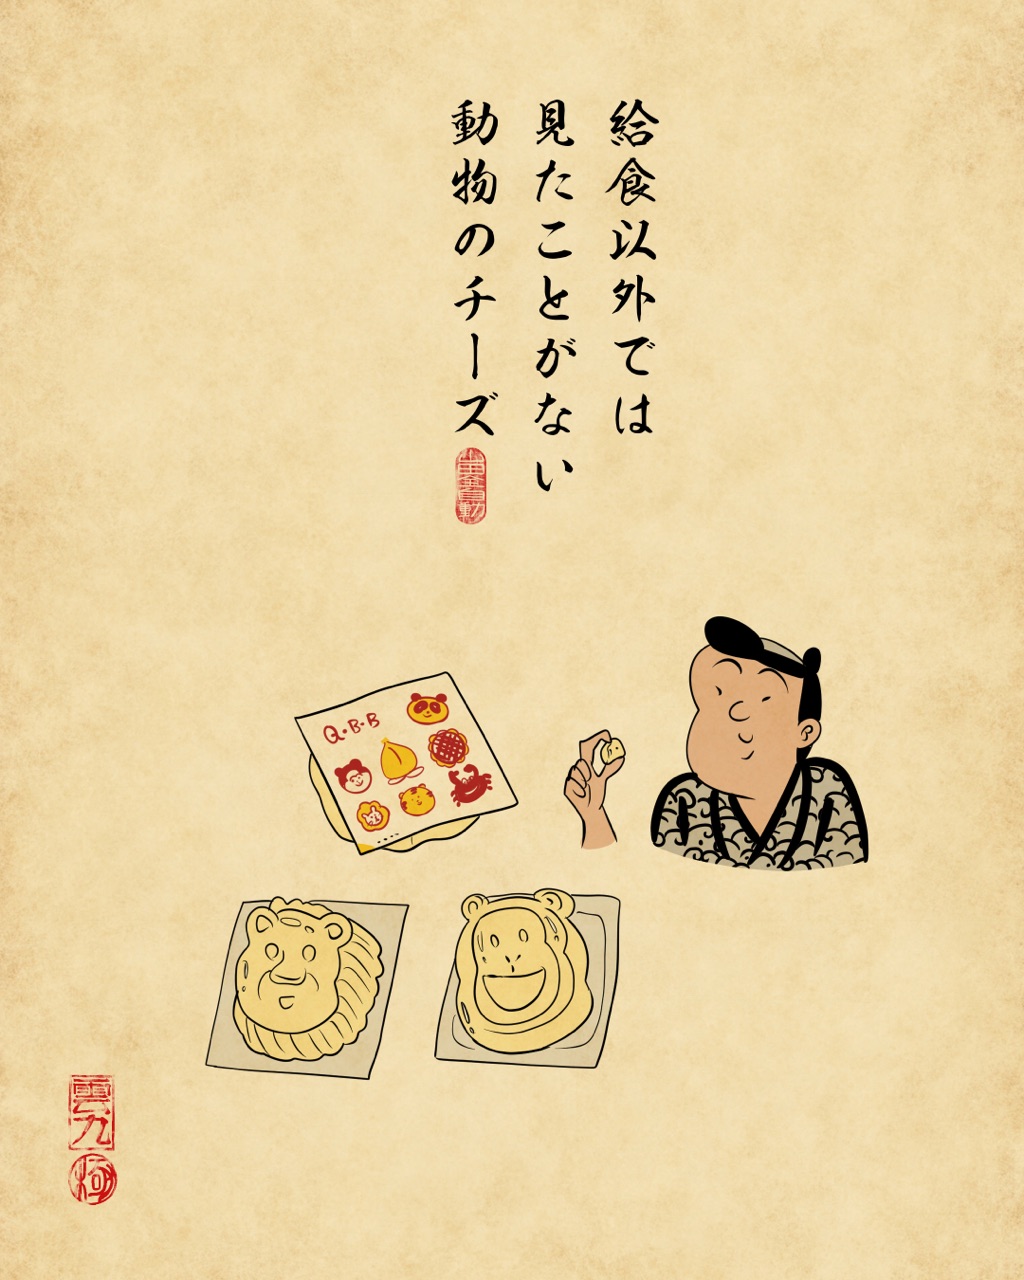 給食以外では
見たことがない
動物のチーズ
Q・B・B